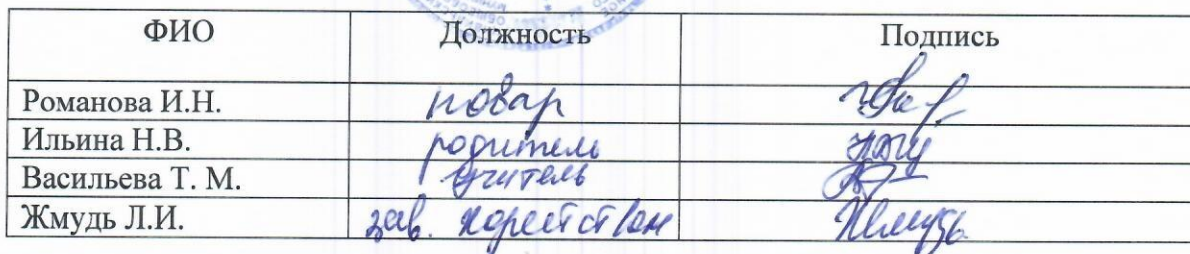 ФИО Должность Подпись
Романова И.Н. повар
Ильина Н.В. родитель
Васильева Т. М. учитель
Жмудь Л.И. зав.